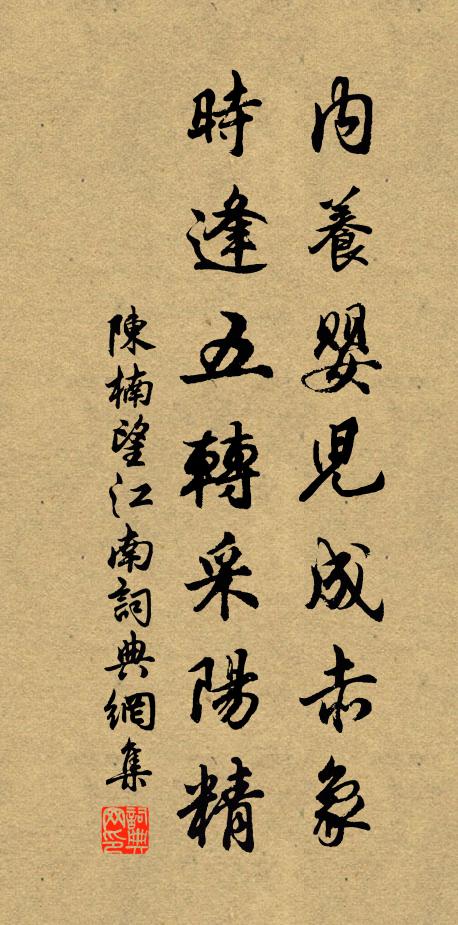 內養嬰兒成赤象
時逢五轉采陽精
陳楠望江南詞典網集
詞典網印